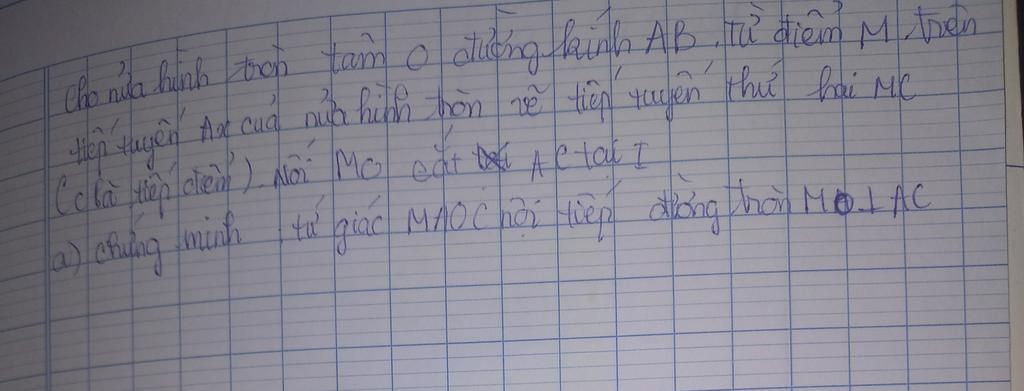 Cho nửa hình tròn tâm O đường kính AB. từ điểm M trên
tiếp tuyến Ax của nửa hình tròn vẽ tiếp tuyến thứ hai MC
(c là tiếp điểm). Nối MO cắt AC tại I
a) chứng minh tứ giác MAOC nội tiếp đường tròn MO⊥AC